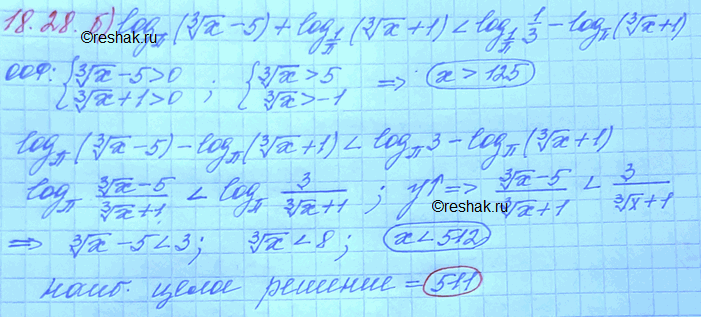 18.28 б) log_π(∛x−5)+log_{1/π}(∛x+1)<log_{1/π} 1/3 − log_π(∛x+1)
©reshak.ru
ООФ: {∛x−5>0 ; ∛x+1>0 ; {∛x>5 ; ∛x>−1 ⇒ x>125
log_π(∛x−5)−log_π(∛x+1)<log_π 3−log_π(∛x+1)
log_π (∛x−5)/(∛x+1) < log_π 3/(∛x+1) ; y↑ ⇒ (∛x−5)/(∛x+1) < 3/(∛x+1)
©reshak.ru
⇒ ∛x−5<3; ∛x<8; x<512
наиб. целое решение = 511